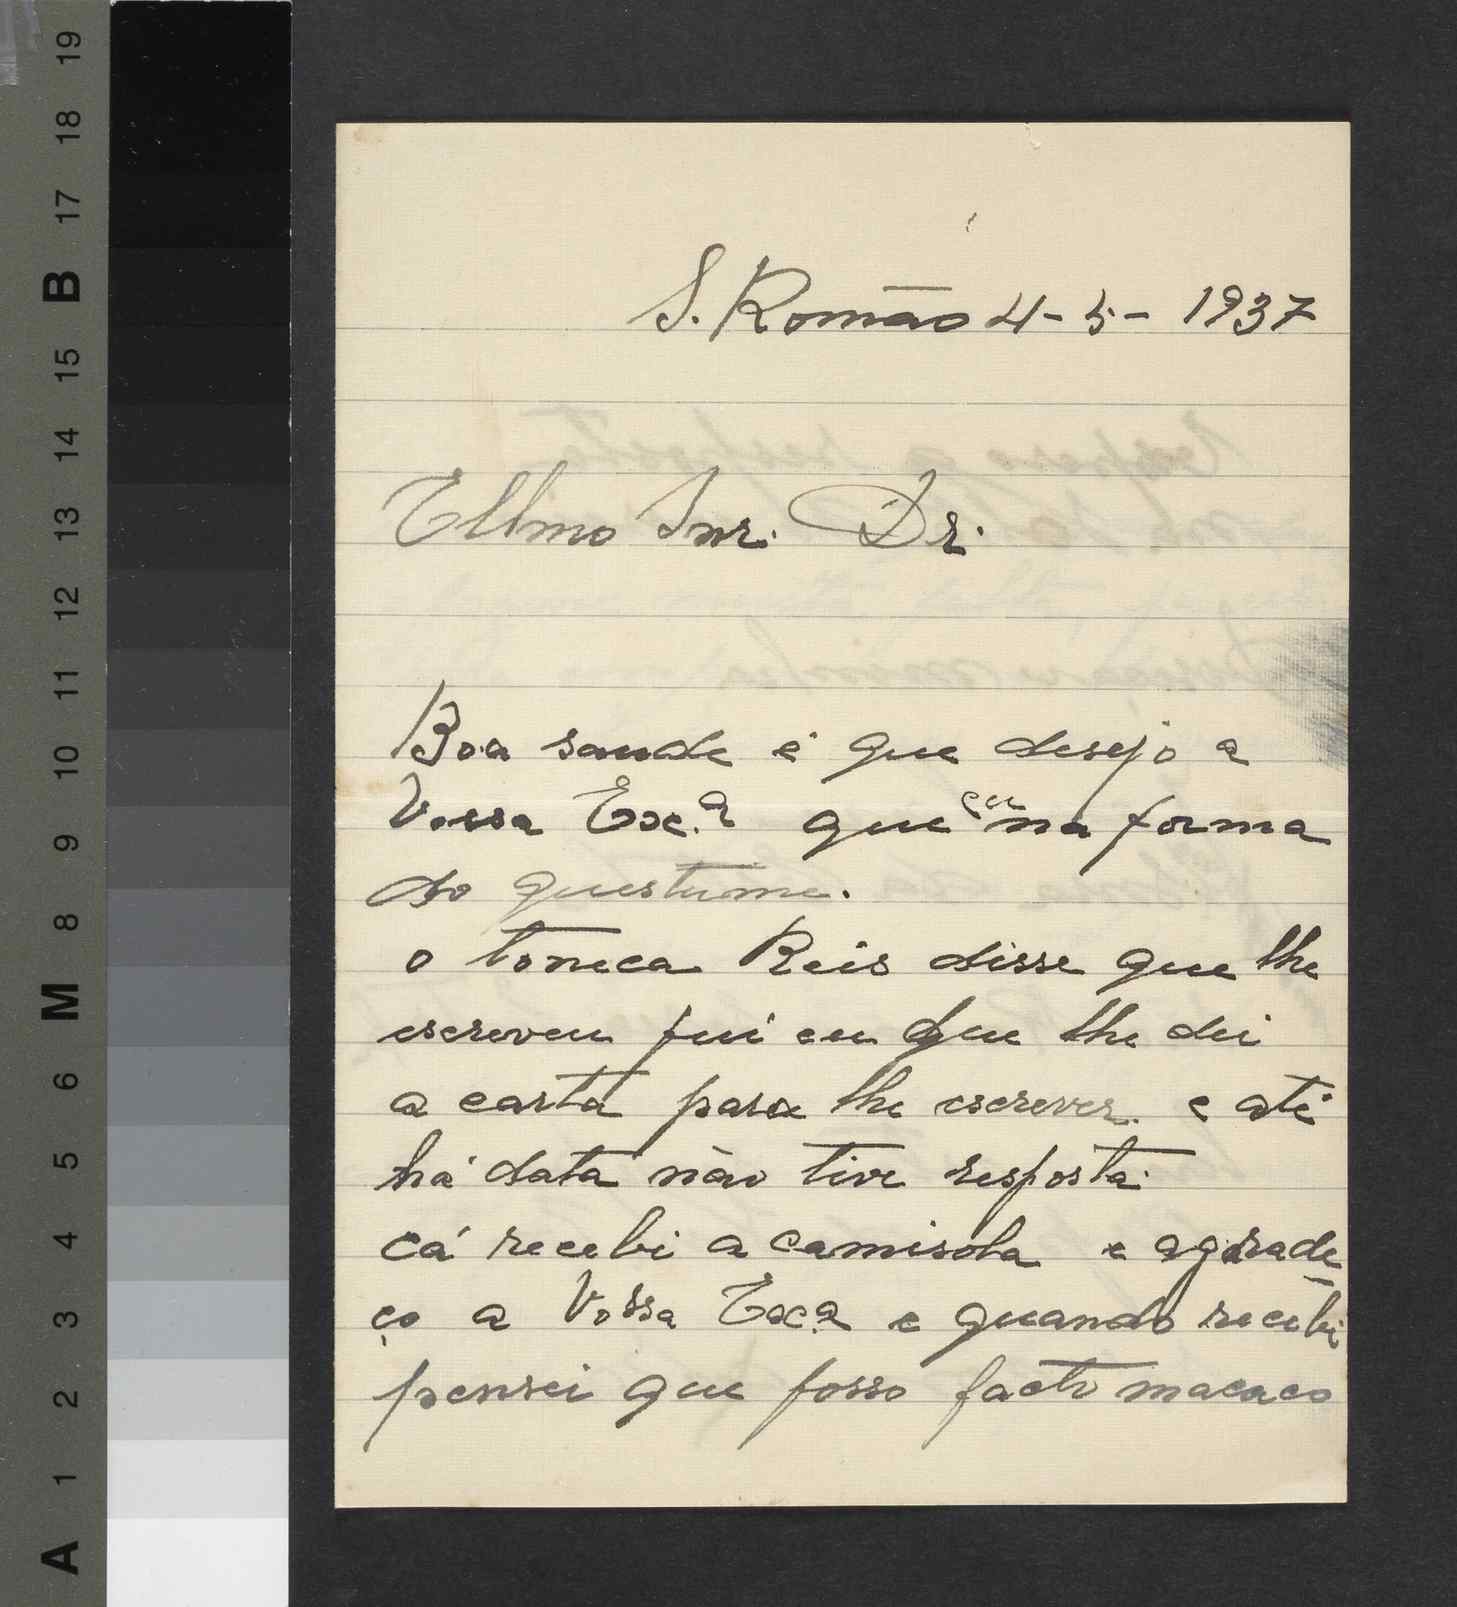 19
18
17
B
16
15
14
13
12
11
10
9
8
M
6
5
4
3
2
1
A
S. Romão 4-5-1937
Ellmo Snr. Dr.
Boa saude é que desejo a
Vossa Exc.ª que eu na forma
do questume.
o toneca Reis disse que lhe
escreveu fui eu que lhe dei
a carta para lhe escrever. e até
há data não tive resposta.
cá recebi a camisola e agrade
ço a Vossa Exc.ª e quando recebi
pensei que fosso facto macaco